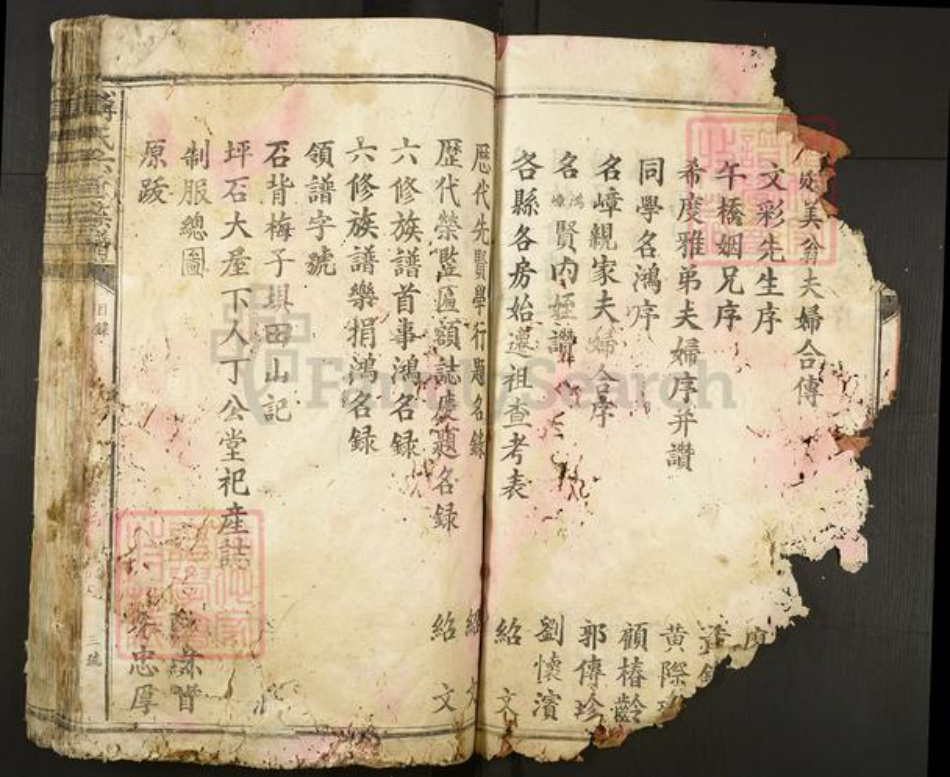 美翁夫婦合傳
文彩先生序
午橋姻兄序
希度雅弟夫婦序并讃 黃際
同學名鴻序 顧椿齡
名嶂親家夫婦合序 郭傳珍
名鴻嶂賢內姪讚 劉懷濱
各縣各房始遷祖查考表 紹文
歷代先賢學行題名錄
歴代榮監匾額誌慶題名録 紹文
六修族譜首事鴻名録
六修族譜樂捐鴻名録
領譜字號
石背梅子垻田山記
坪石大屋下人丁公堂祀産誌
制服總圖
原跋 忠厚
氏六修族譜
目録
三號
FamilySearch